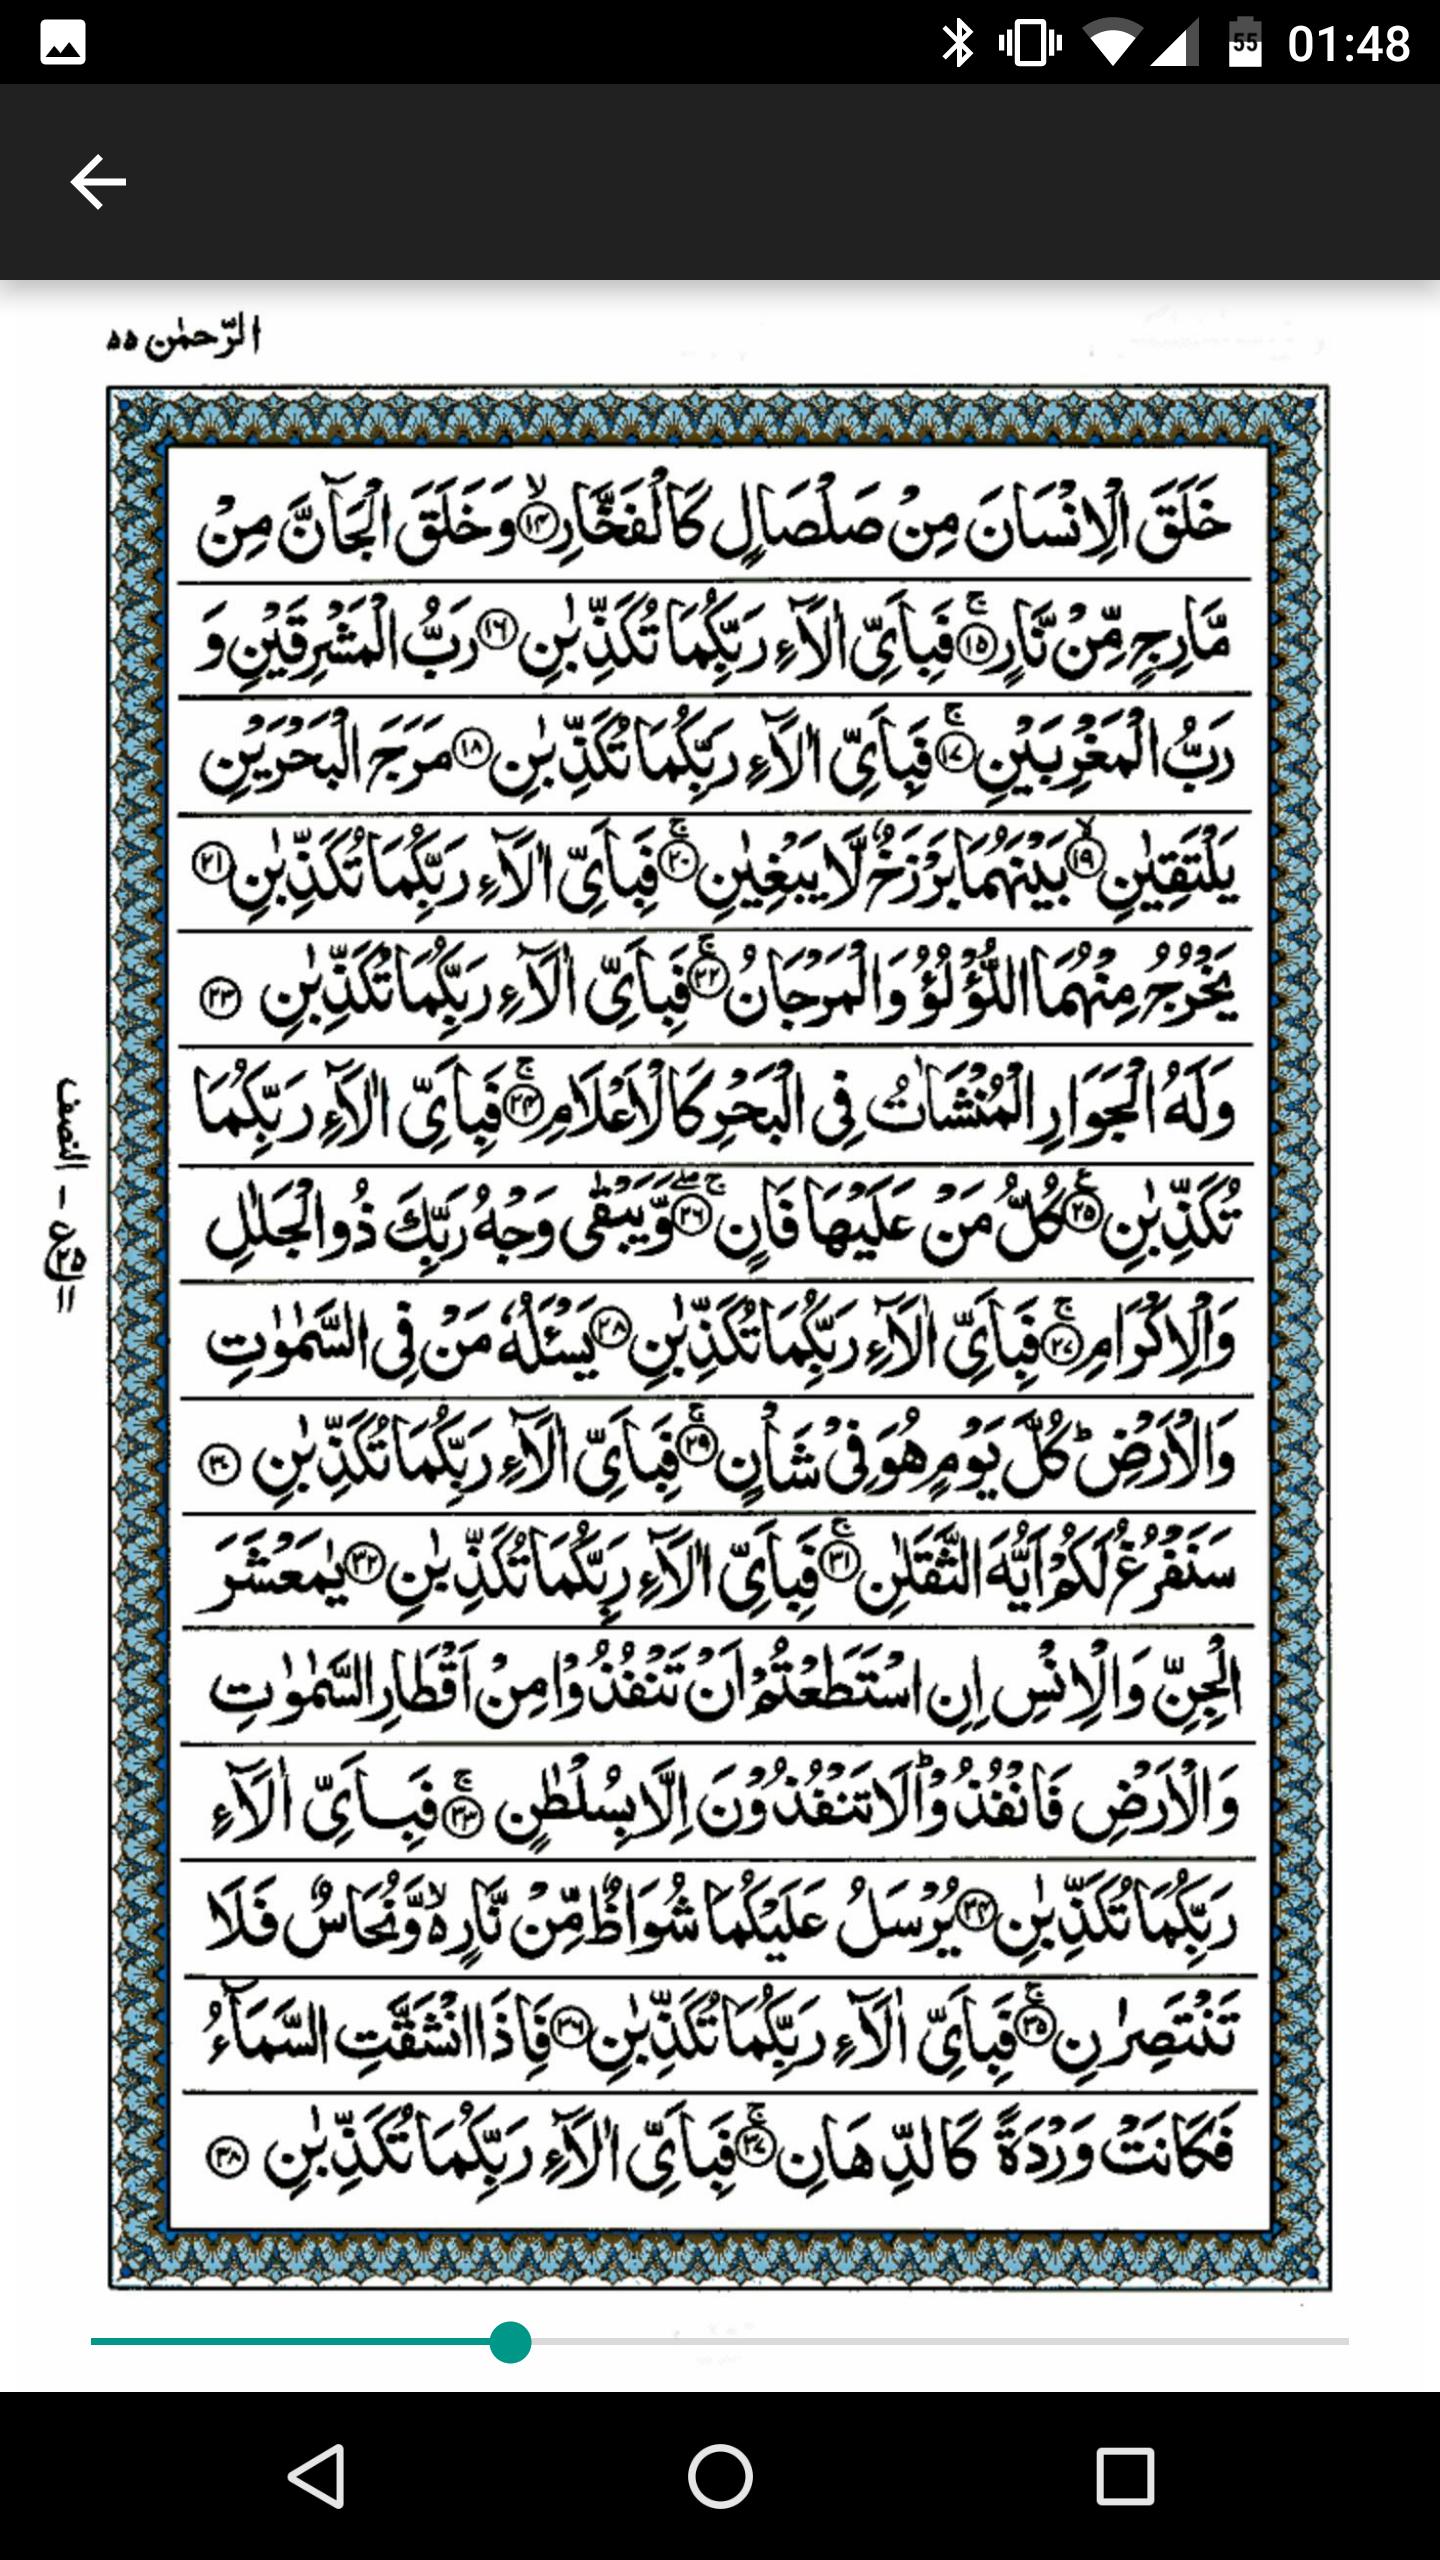 55
01:48
الرّحمٰن ٥٥
خَلَقَ الْاِنْسَانَ مِنْ صَلْصَالٍ كَالْفَخَّارِ ۙ‏﴿۱۴﴾ وَخَلَقَ الْجَآنَّ مِنْ
مَّارِجٍ مِّنْ نَّارٍ ۚ‏﴿۱۵﴾ فَبِاَىِّ اٰلَآءِ رَبِّكُمَا تُكَذِّبٰنِ ﴿۱۶﴾ رَبُّ الْمَشْرِقَيْنِ وَ
رَبُّ الْمَغْرِبَيْنِ ۚ‏﴿۱۷﴾ فَبِاَىِّ اٰلَآءِ رَبِّكُمَا تُكَذِّبٰنِ ﴿۱۸﴾ مَرَجَ الْبَحْرَيْنِ
يَلْتَقِيٰنِ ۙ‏﴿۱۹﴾ بَيْنَهُمَا بَرْزَخٌ لَّا يَبْغِيٰنِ ۚ‏﴿۲۰﴾ فَبِاَىِّ اٰلَآءِ رَبِّكُمَا تُكَذِّبٰنِ ﴿۲۱﴾
يَخْرُجُ مِنْهُمَا اللُّؤْلُؤُ وَالْمَرْجَانُ ۚ‏﴿۲۲﴾ فَبِاَىِّ اٰلَآءِ رَبِّكُمَا تُكَذِّبٰنِ ﴿۲۳﴾
وَلَهُ الْجَوَارِ الْمُنْشَاٰتُ فِى الْبَحْرِ كَالْاَعْلَامِ ۚ‏﴿۲۴﴾ فَبِاَىِّ اٰلَآءِ رَبِّكُمَا
تُكَذِّبٰنِ ﴿۲۵﴾ ع كُلُّ مَنْ عَلَيْهَا فَانٍ ۚۖ‏﴿۲۶﴾ وَّيَبْقٰى وَجْهُ رَبِّكَ ذُو الْجَلٰلِ
وَالْاِكْرَامِ ۚ‏﴿۲۷﴾ فَبِاَىِّ اٰلَآءِ رَبِّكُمَا تُكَذِّبٰنِ ﴿۲۸﴾ يَسْئَلُهٗ مَنْ فِى السَّمٰوٰتِ
وَالْاَرْضِ ؕ كُلَّ يَوْمٍ هُوَ فِىْ شَاْنٍ ۚ‏﴿۲۹﴾ فَبِاَىِّ اٰلَآءِ رَبِّكُمَا تُكَذِّبٰنِ ﴿۳۰﴾
سَنَفْرُغُ لَكُمْ اَيُّهَ الثَّقَلٰنِ ۚ‏﴿۳۱﴾ فَبِاَىِّ اٰلَآءِ رَبِّكُمَا تُكَذِّبٰنِ ﴿۳۲﴾ يٰمَعْشَرَ
الْجِنِّ وَالْاِنْسِ اِنِ اسْتَطَعْتُمْ اَنْ تَنْفُذُوْا مِنْ اَقْطَارِ السَّمٰوٰتِ
وَالْاَرْضِ فَانْفُذُوْا ؕ لَا تَنْفُذُوْنَ اِلَّا بِسُلْطٰنٍ ۚ‏﴿۳۳﴾ فَبِاَىِّ اٰلَآءِ
رَبِّكُمَا تُكَذِّبٰنِ ﴿۳۴﴾ يُرْسَلُ عَلَيْكُمَا شُوَاظٌ مِّنْ نَّارٍ ۙ وَّنُحَاسٌ فَلَا
تَنْتَصِرٰنِ ۚ‏﴿۳۵﴾ فَبِاَىِّ اٰلَآءِ رَبِّكُمَا تُكَذِّبٰنِ ﴿۳۶﴾ فَاِذَا انْشَقَّتِ السَّمَآءُ
فَكَانَتْ وَرْدَةً كَالدِّهَانِ ۚ‏﴿۳۷﴾ فَبِاَىِّ اٰلَآءِ رَبِّكُمَا تُكَذِّبٰنِ ﴿۳۸﴾
النصف